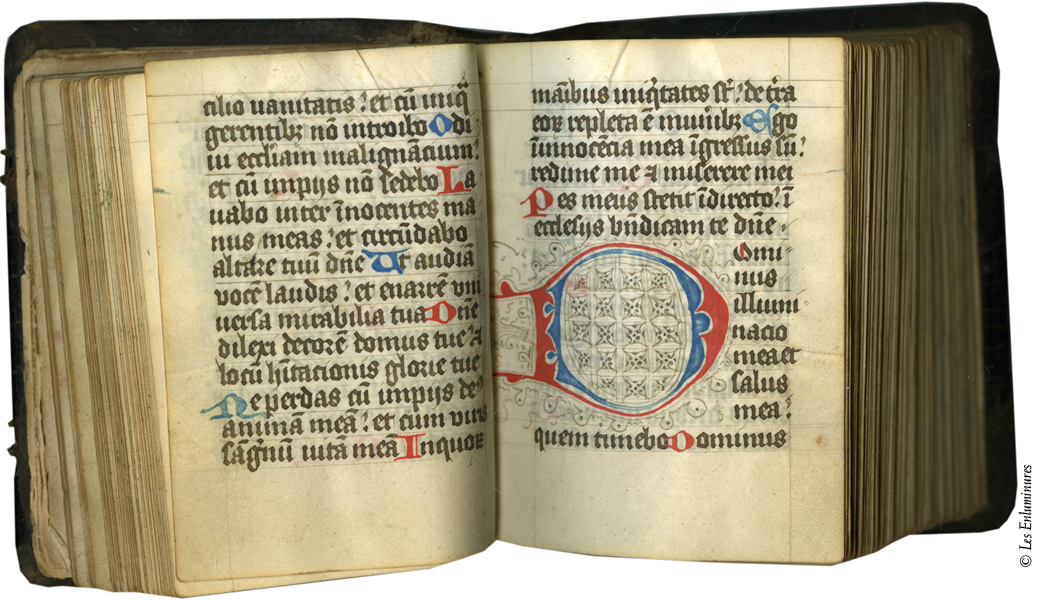 cilio uanitatis ? et cū iniq̄
gerentibꝫ nō introibo Odi
ui eccliam malignāciūm ?
et cū impijs nō sedebo La
uabo inter īnocentes ma
nus meas ? et circūdabo
altare tuū dn̄e Ut audiā
vocē laudis ? et enarrē vni
uersa mirabilia tua Dn̄e
dilexi decorē domus tue ? ⁊
locū hītacionis glorie tue
Ne perdas cū impijs de?
animā meā ? et cum viris
sāgīnū uitā meā In quorꝝ
manībus iniq̄tates st̄ ? dextra
eoꝝ repleta ē munibꝫ Ego
ī innocēcia mea īgressus sū ?
redime me ⁊ miserere mei
Pes meus stetit ī directo ? ī
ecclesijs bn̄dicam te dn̄e .
Domi
nus
illumi
nacio
mea et
salus
mea ?
quem timebo Dominus
© Les Enluminures